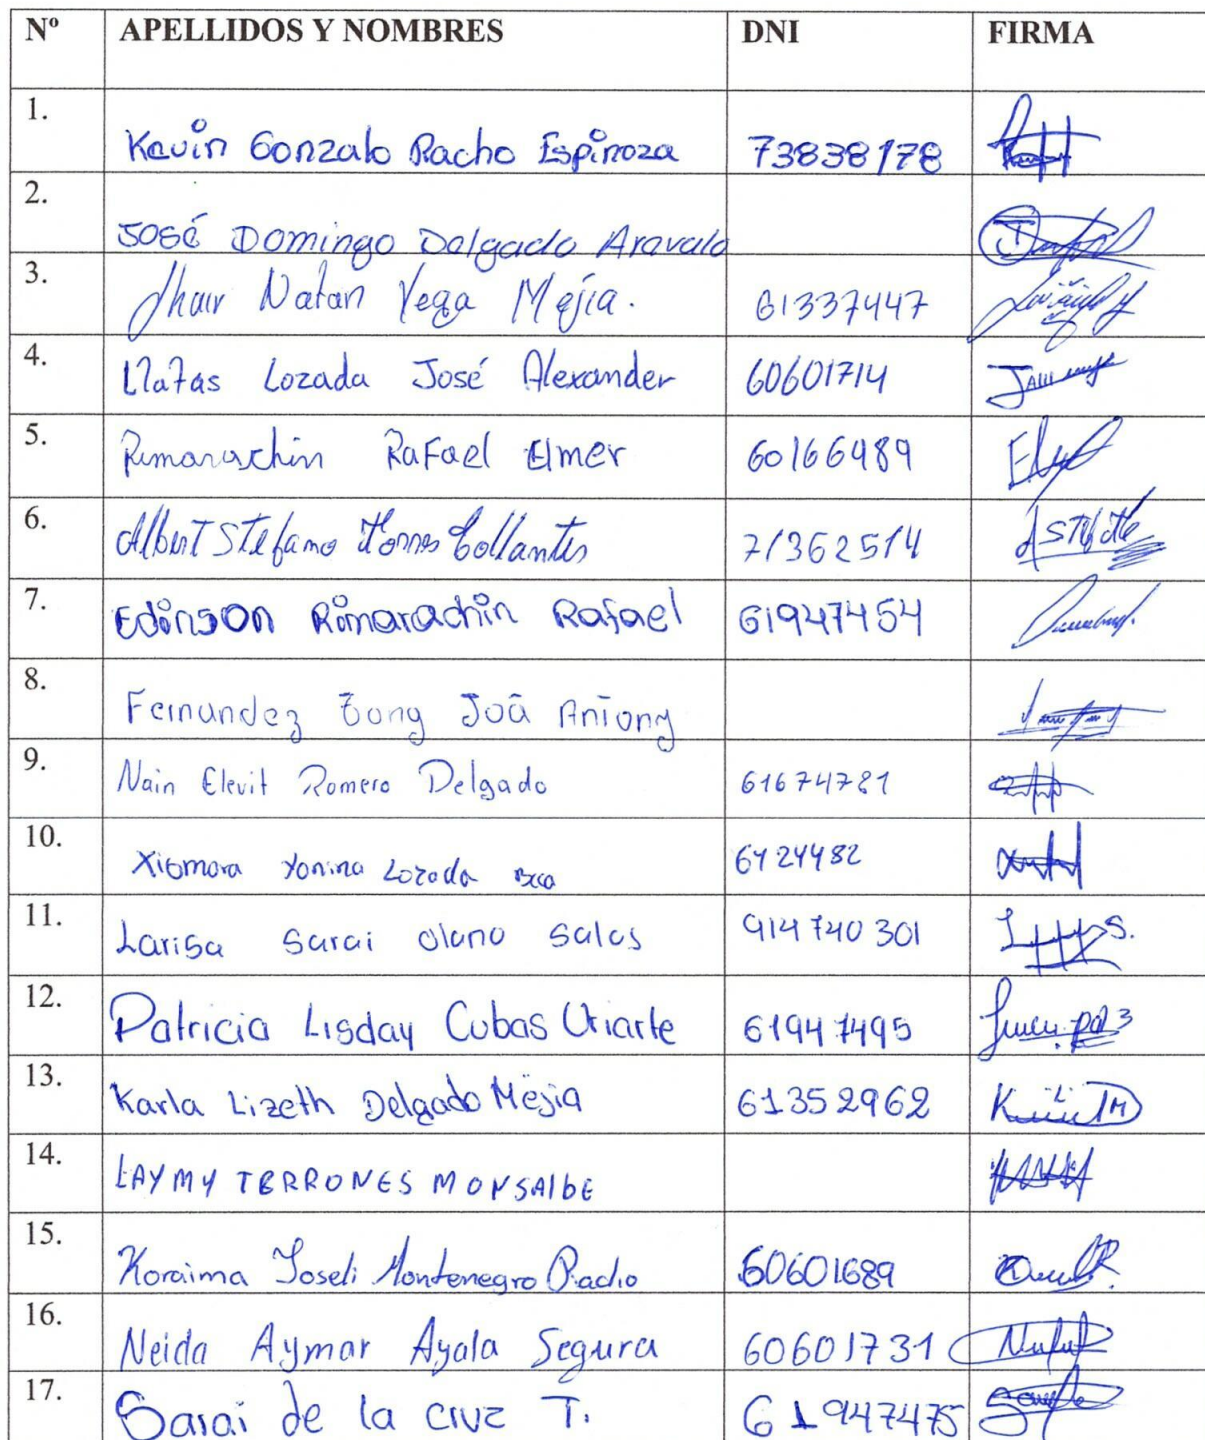 Nº APELLIDOS Y NOMBRES DNI FIRMA
1. Kevin Gonzalo Racho Espinoza 73838178
2. José Domingo Delgado Aravalo
3. Jhair Natan Vega Mejía. 61337447
4. Llatas Lozada José Alexander 60601714
5. Rimarachin Rafael Elmer 60166989
6. Albert Stefano Torres Collantes 71362514
7. Edinson Rimarachin Rafael 61947454
8. Fernandez Joã Antony
9. Nain Elevit Romero Delgado 61674781
10. Xiomara Yonina Lozada 6424482
11. Larisa Sarai Olano Salas 914740301
12. Patricia Lisday Cubas Uriarte 61947495
13. Karla Lizeth Delgado Mejia 61352962
14. LAYMY TERRONES MONSAlbE
15. Koraima Yoseli Montenegro Racho 60601689
16. Neida Aymar Ayala Segura 60601731
17. Sarai de la cruz T. 61947475